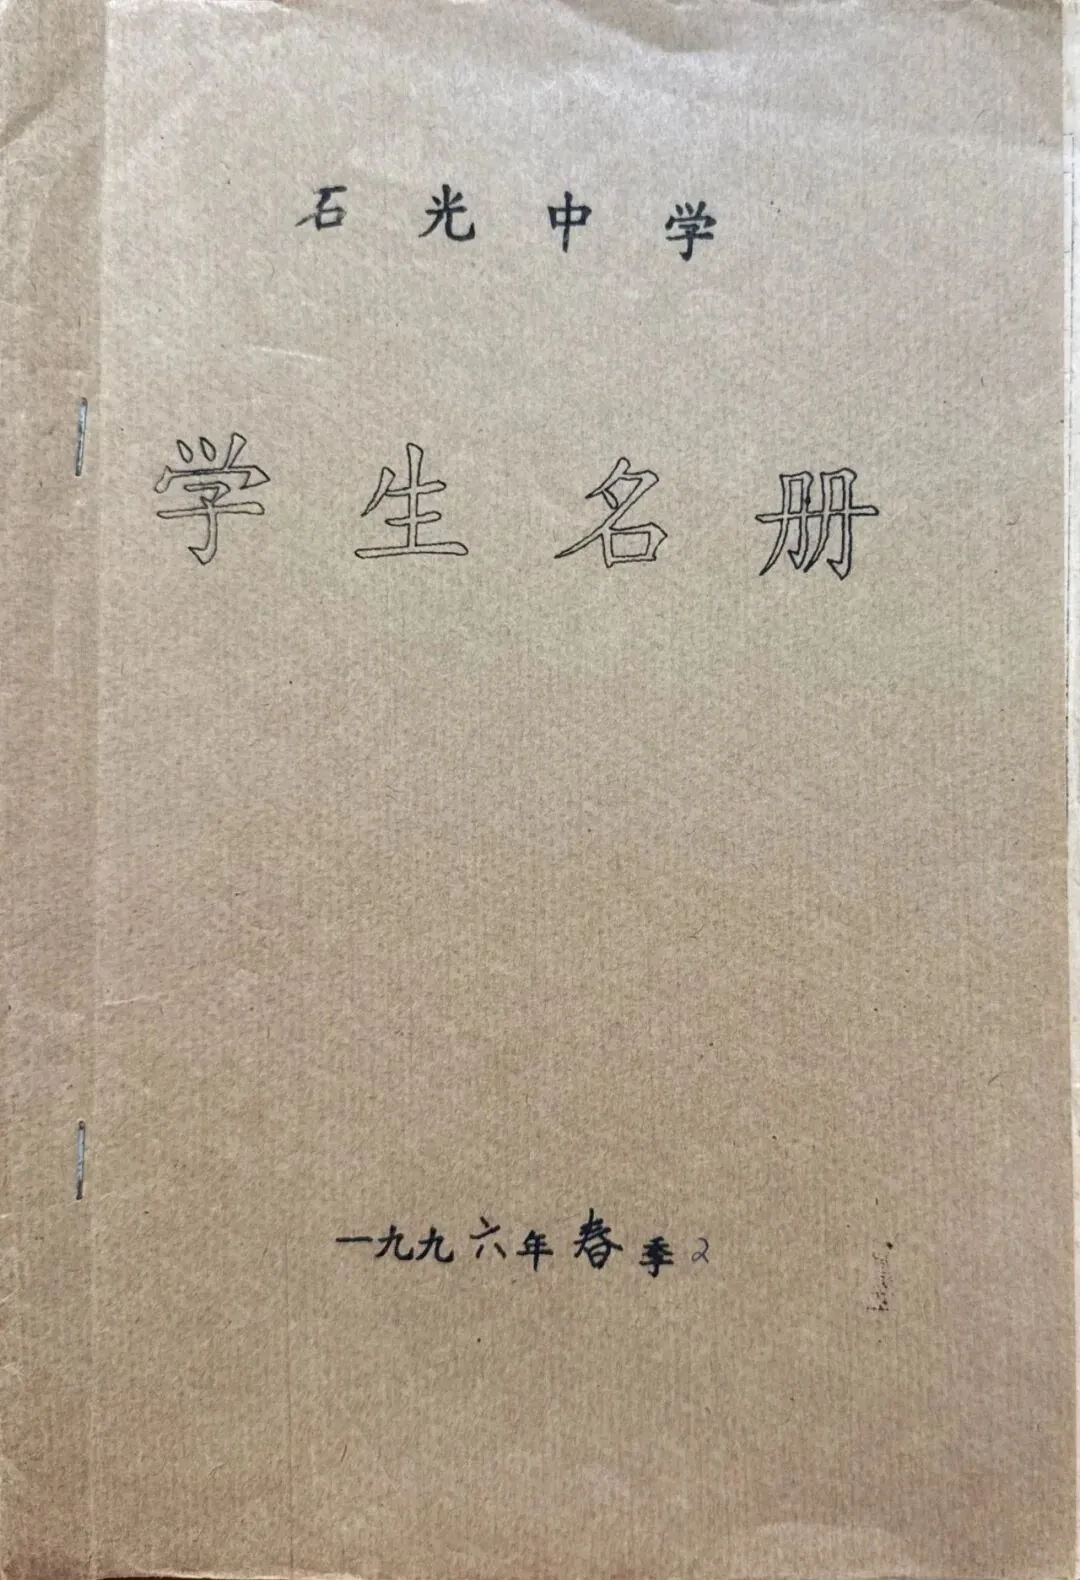 石光中学
学生名册
一九九六年春季2